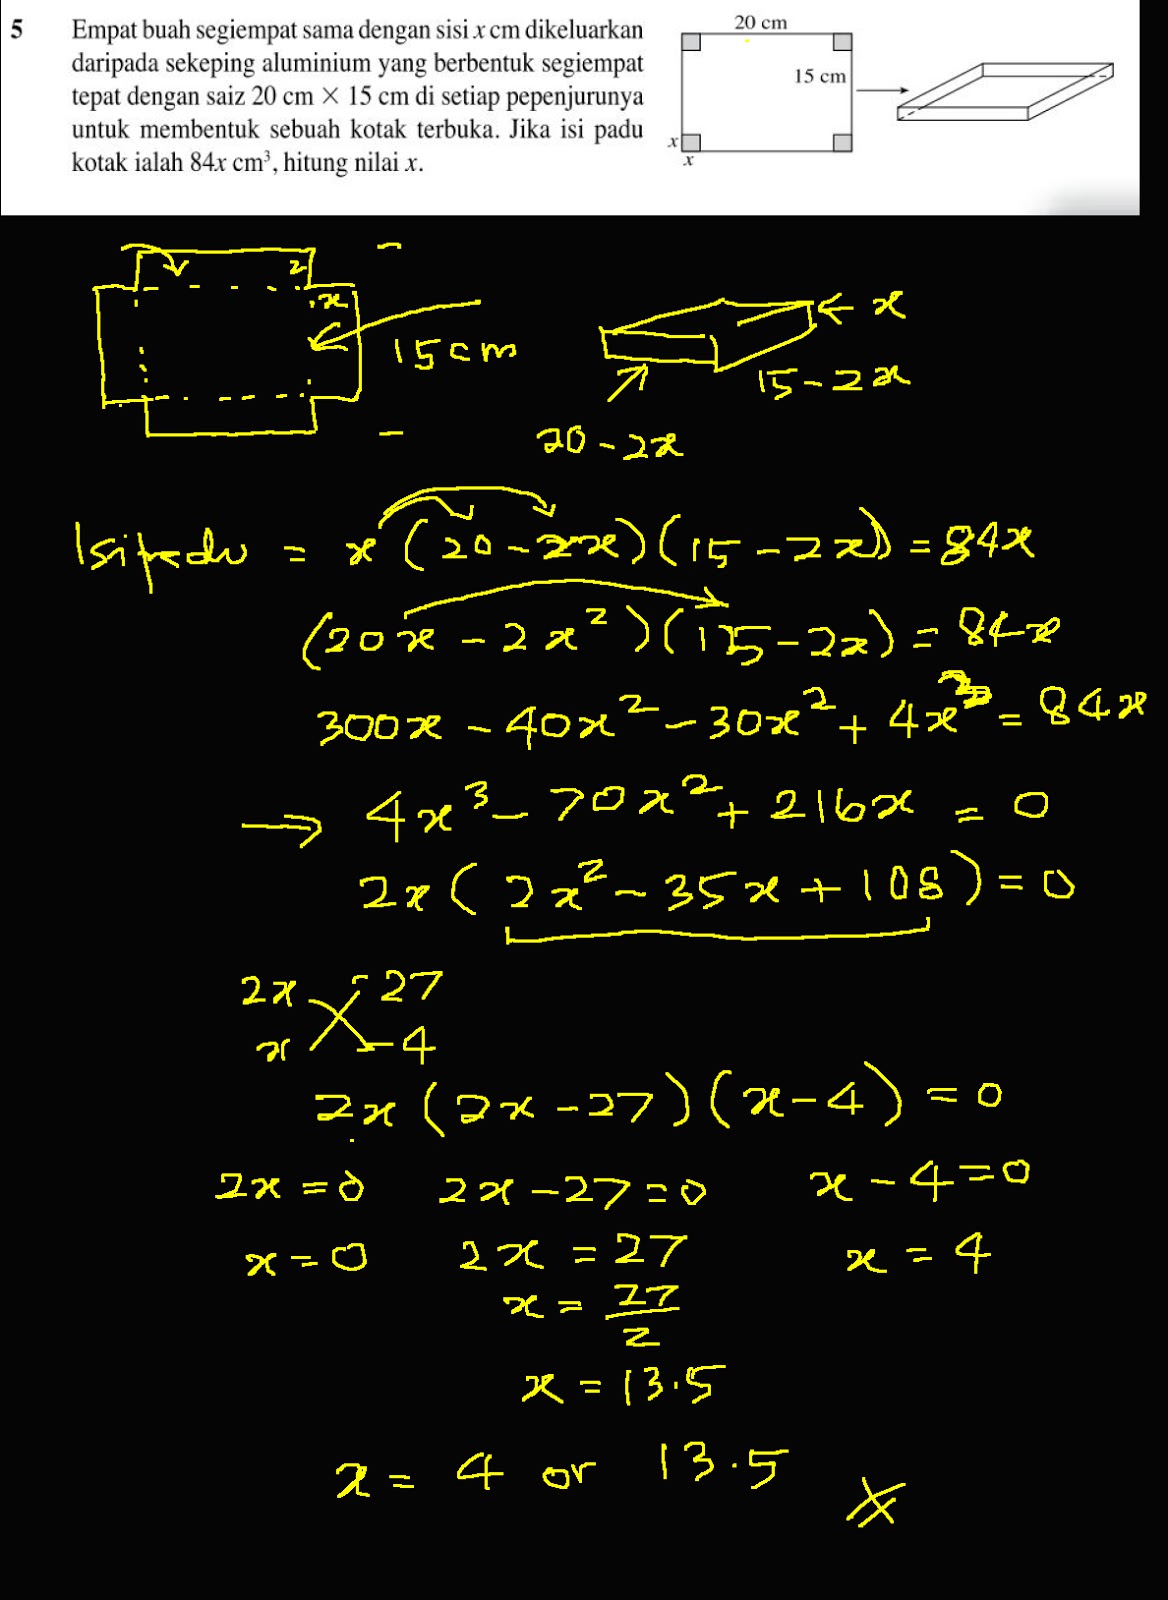 5 Empat buah segiempat sama dengan sisi x cm dikeluarkan
daripada sekeping aluminium yang berbentuk segiempat
tepat dengan saiz 20 cm × 15 cm di setiap pepenjurunya
untuk membentuk sebuah kotak terbuka. Jika isi padu
kotak ialah 84x cm³, hitung nilai x.
20 cm
15 cm
x
x
x
15 cm
x
15 - 2x
20 - 2x
Isipadu = x (20 - 2x)(15 - 2x) = 84x
(20x - 2x²)(15 - 2x) = 84x
300x - 40x² - 30x² + 4x³ = 84x
→ 4x³ - 70x² + 216x = 0
2x (2x² - 35x + 108) = 0
2x -27
x -4
2x (2x - 27)(x - 4) = 0
2x = 0 2x - 27 = 0 x - 4 = 0
x = 0 2x = 27 x = 4
x = 27/2
x = 13.5
x = 4 or 13.5